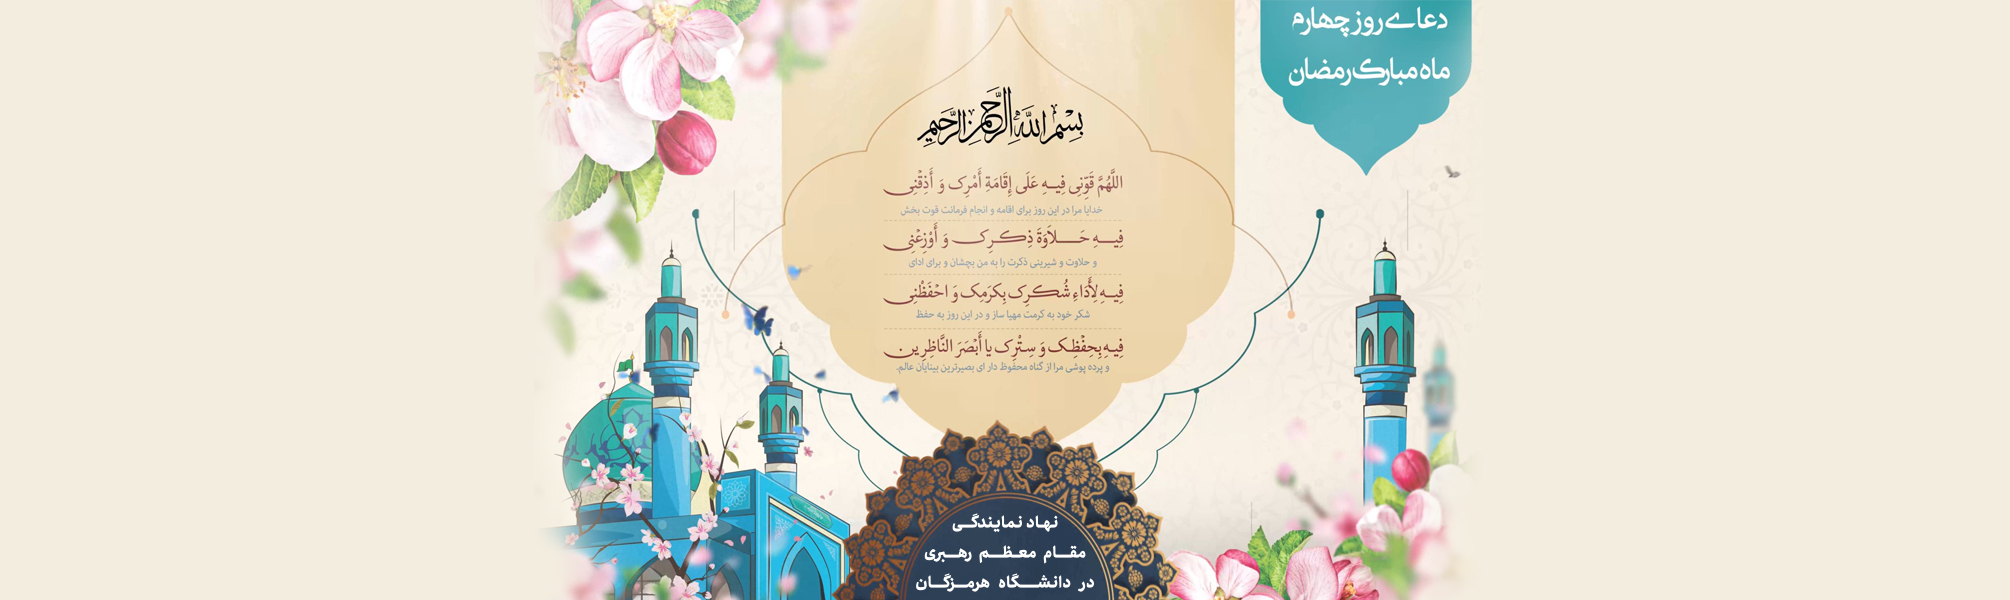 دعای روز چهارم
ماه مبارک رمضان
بِسْمِ اللَّهِ الرَّحْمَنِ الرَّحِيمِ
اللَّهُمَّ قَوِّنِی فِیـهِ عَلَی إِقَامَةِ أَمْرِک وَ أَذِقْنِی
خدایا مرا در این روز برای اقامه و انجام فرمانت قوت بخش
فِیـهِ حَـلاَوَةَ ذِکْرِک وَ أَوْزِعْنِی
و حلاوت و شیرینی ذکرت را به من بچشان و برای ادای
فِیـهِ لِأَدَاءِ شُکْرِک بِکَرَمِک وَ احْفَظْنِی
شکر خود به کرمت مهیا ساز و در این روز به حفظ
فِیـهِ بِحِفْظِک وَ سِتْرِک یا أَبْصَرَ النَّاظِرِین
و پرده پوشی مرا از گناه محفوظ دار ای بصیرترین بینایان عالم.
نهاد نمایندگی
مقام معظم رهبری
در دانشگاه هرمزگان